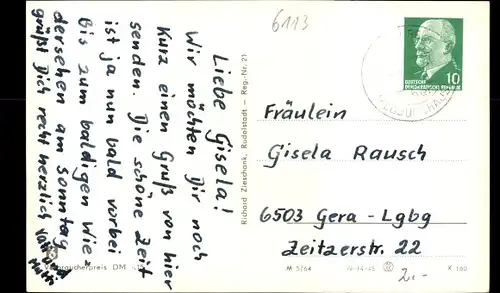 6113
Liebe Gisela!
Wir möchten Dir noch
kurz einen Gruß von hier
senden. Die schöne Zeit
ist ja nun bald vorbei
Bis zum baldigen Wie-
dersehen am Sonntag
grüßt Dich recht herzlich Vati und
Mutti
Verbraucherpreis DM
Richard Zieschank, Rudolstadt — Reg.-Nr. 21
DEUTSCHE
DEMOKRATISCHE REPUBLIK
10
Fräulein
Gisela Rausch
6503 Gera - Lgbg
Zeitzerstr. 22
M 5/64
K 160
2,-